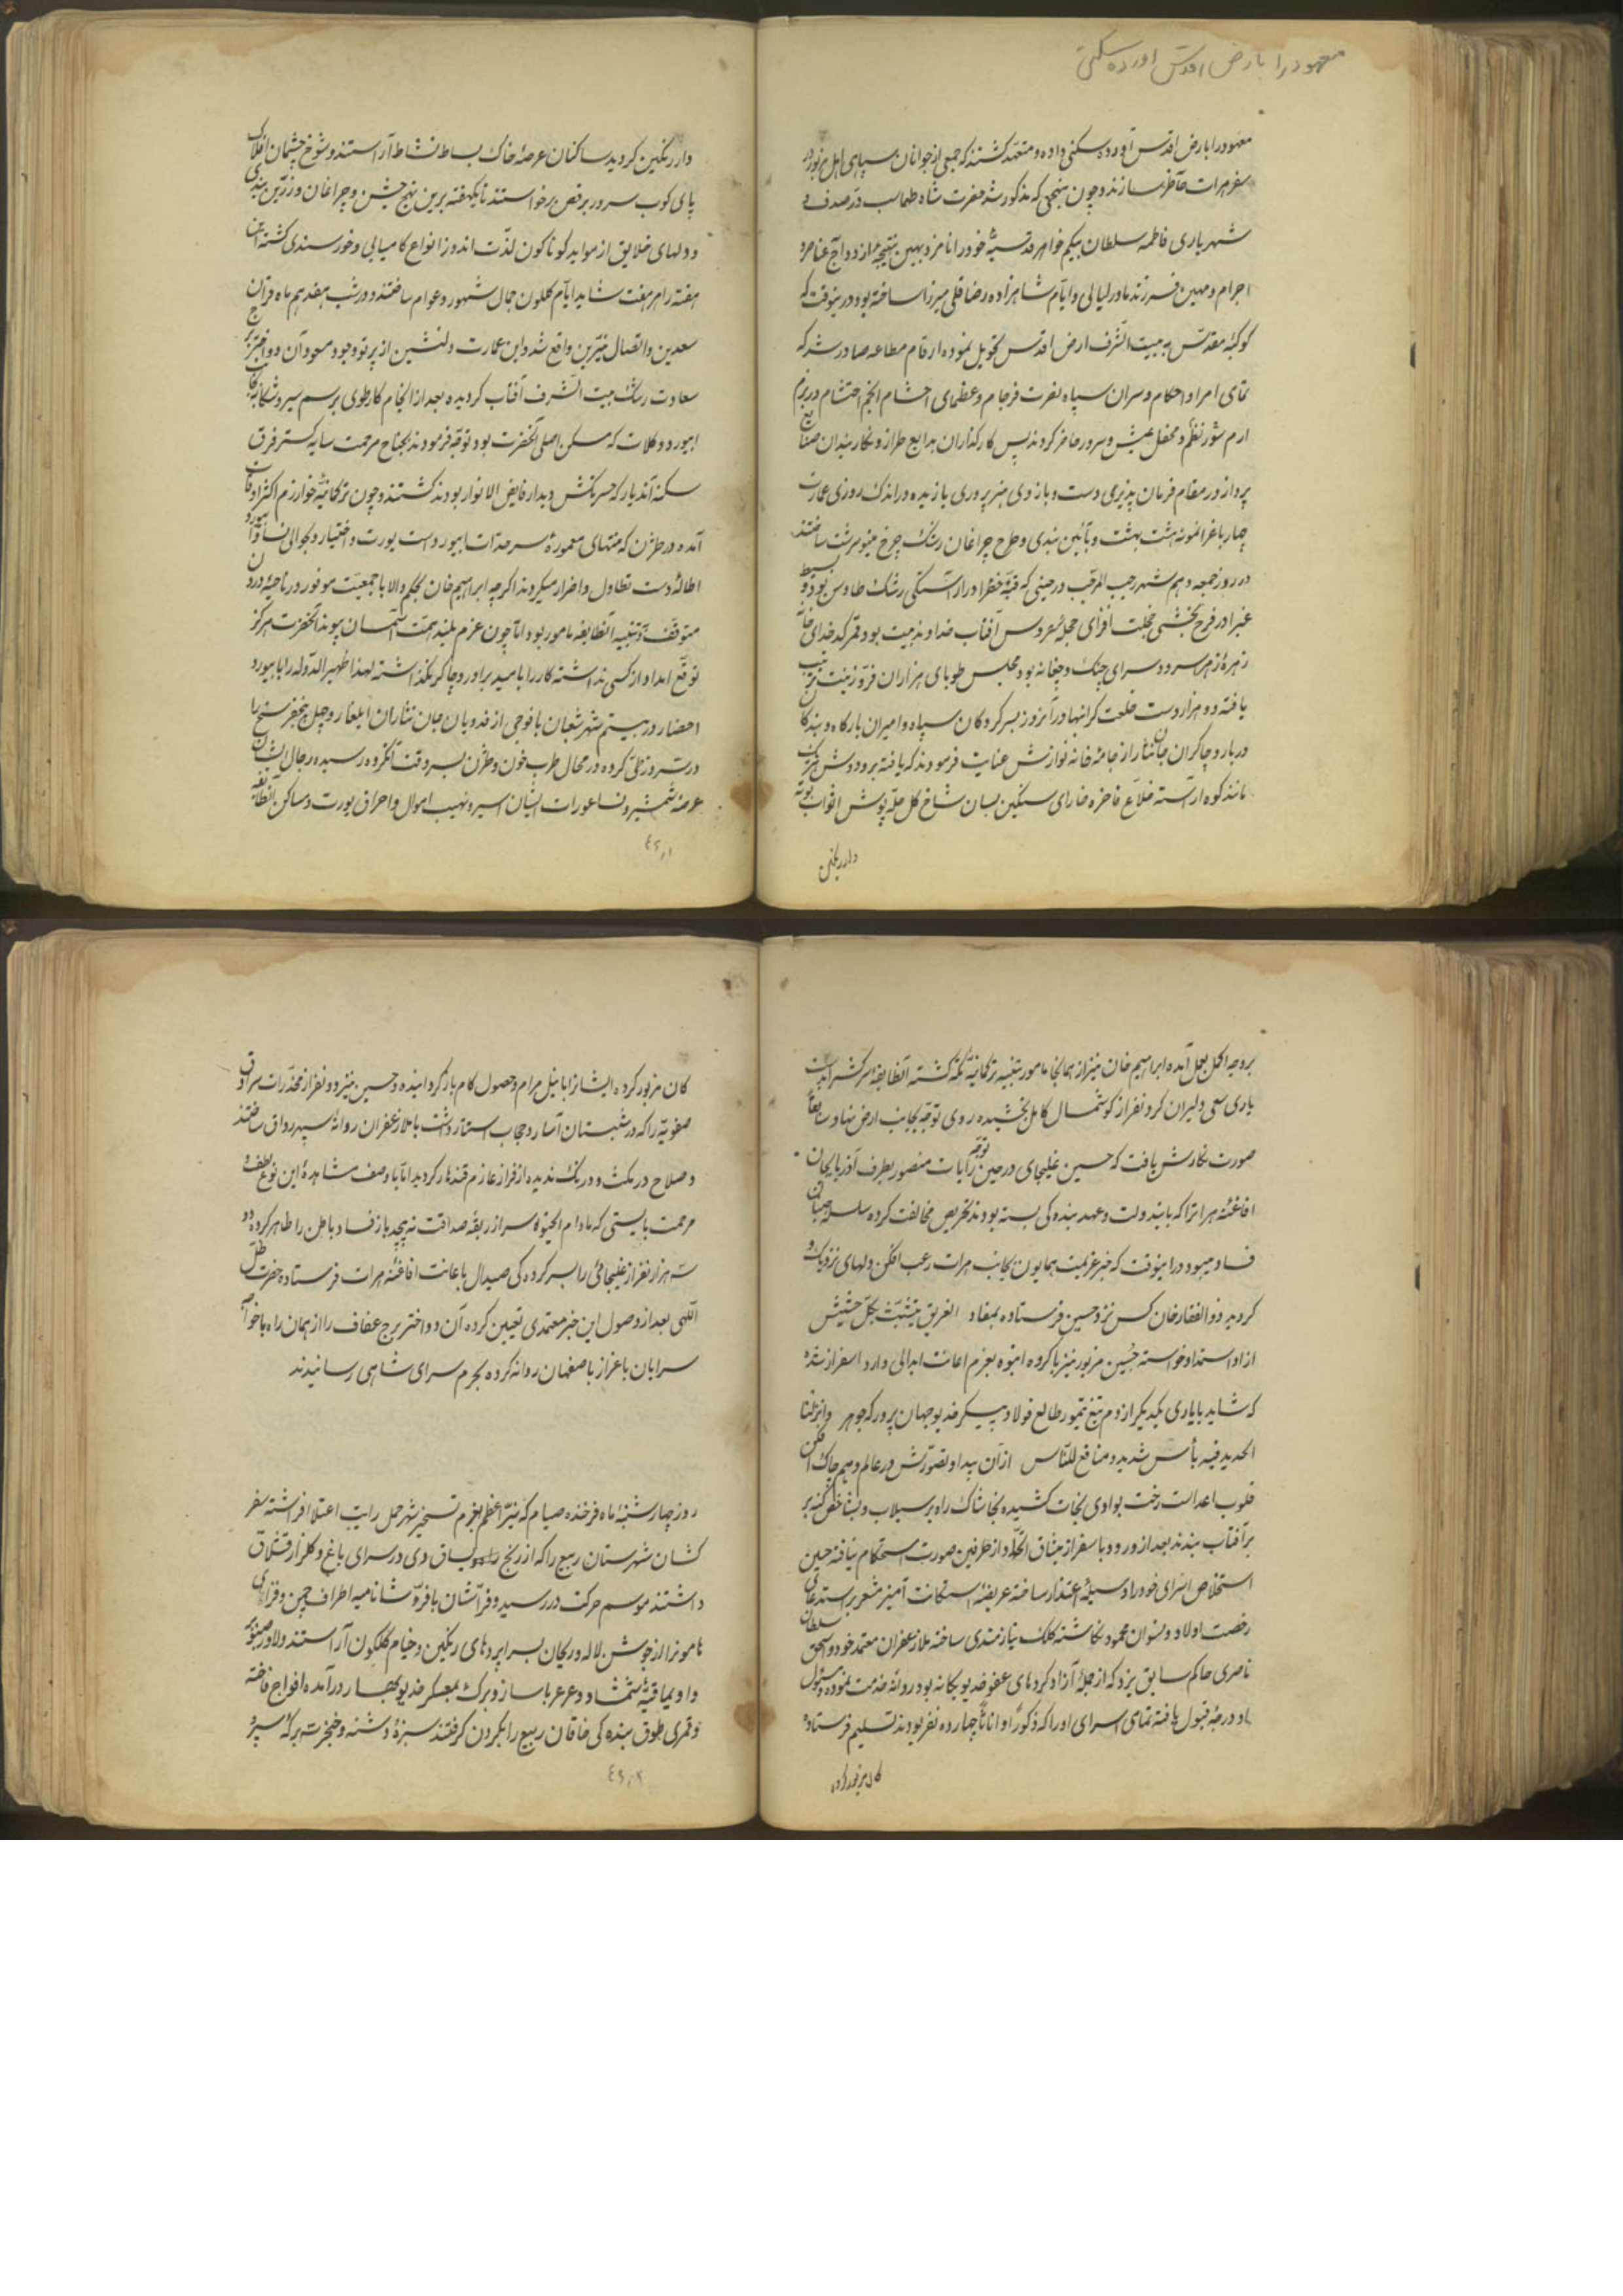 معهود را بارض اقدس آورده سکنی
معهود را بارض اقدس آورده سکنی داده و متعهد کشتند که جمعی از جوانان سپاهی ایل مزبور در
سفر هرات حاضر سازند و چون بنهجی که مذکور شد حضرت شاه طهماسب در صدف
شهریاری فاطمه سلطان بیکم خواهر قدسیهٔ خود را نامزد بهین نتیجهٔ ازدواج عناصر و
اجرام و مهین فرزند مادر لیالی و ایام شاهزاده رضا قلی میرزا ساخته بود در ینوقت که
کوکبهٔ مقدس به بیت الشرف ارض اقدس تحویل نموده ارقام مطاعه صادر شد که
تمامی امرا و احکام و سران سپاه نصرت فرجام و عظمای احشام انجم احتشام در بزم
ارم شور نظم و محفل عیش و سرور حاضر کردند پس کارکذاران بدایع طراز و نکاربندان صنایع
پرداز در مقام فرمان پذیری دست و بازوی هنرپروری یازیده در اندک روزی عمارت
چهارباغ را نمونهٔ هشت بهشت و بآئین بندی و طرح چراغان رشک چرخ مینو سرشت ساختند
در روز جمعه دهم شهر رجب المرجب در حینی که قبهٔ خضرا در آراستکی رشک طاوس بود و بسیط
غبرا در فرح بخشی خجلت افزای حجلهٔ عروس آفتاب خداوند بیت بود و قمر کدخدای خانه
زهرهٔ زهرا سرود سرای چنک و چغانه بود مجلس طوبای هزاران فر و زینت ترتیب
یافته دو هزار دست خلعت کرانبها در آنروز بسرکردکان سپاه و امیران بارکاه و بندکان
دربار و چاکران جان نثار از جامه خانهٔ نوازش عنایت فرمودند که یافته بر و دوش هر یک
مانند کوه آراسته خلاع فاخره خارای سنکین بسان شاخ کل حله پوش اثواب بوته
دار رنکین
دار رنکین کردید ساکنان عرصهٔ خاک بساط نشاط آراستند و شوخ چشمان افلاک
پای کوب سرور برقص برخواستند تا یکهفته برین نهج جشن و چراغان و زرین بندی
و دلهای خلایق از مواید کوناکون لذت اندوز انواع کامیابی و خورسندی کشته
هفته را هر هفت شاهد ایام کلکون جمال شهور و عوام ساختند و در شب هفدهم ماه قران
سعدین و اتصال نیرین واقع شد و این عمارت دلنشین از پرتو وجود مسعود آن دو اختر برج
سعادت رشک بیت الشرف آفتاب کردیده بعد از انجام کار طوی برسم سیر و شکار بجانب
ابیورد و کلات که مسکن اصلی آنحضرت بود توجه فرمودند بجناح مرحمت سایه کستر فرق
سکنهٔ آندیار که حسرتکش دیدار فایض الانوار بودند کشتند و چون ترکمانیهٔ خوارزم اکثر اوقات
آمده در طژن که منتهای معمورهٔ سرحدات ابیورد است یورت و اختیار و بحوالی نسا و ابیورد
اطالهٔ دست تطاول و اضرار میکردند اکرچه ابراهیم خان بحکم والا با جمعیت موفور در ناحیهٔ درون
متوقف و تنبیه آنطایفه مامور بود اما چون عزم بلند همت آسمان پیوند آنحضرت هرکز
توقع امداد از کسی نداشته کار را بامید برادر و چاکر نکذاشته لهذا ظهیر الدوله را بابیورد
احضار در بیستم شهر شعبان با فوجی از فدویان جان نثاران ایلغار و چهل پنجفرسخ را
در سه روز طی کرده در محال طرب خون و طژن بسروقت آنکروه رسیده رجال ایشان
عرضهٔ شمشیر و نسا و عورات ایشان اسیر و نهیب اموال و احراق یورت و مساکن آنطایفه
بر وجه اکمل بعمل آمده ابراهیم خان نیز از همانجا مامور بتنبیه ترکمانیهٔ تکه کشته آنطایفهٔ سرکش را
یاری سعی دلیران کرد و نفر از کوشمال کامل بخشیده روی توجه بجانب ارض نهاد سابقا
صورت نکارش یافت که حسین غلیجای در حین توجه رایات منصور بطرف آذربایجان
افاغنهٔ هرات را که بایندولت و عهد بنده کی بسته بودند تحریص مخالفت کرده سلسله جنبان
فساد میبود در اینوقت که خبر عزیمت همایون بجانب هرات رعب افکن دلهای نزدیک و
کردید ذوالفقار خان کس نزد حسین فرستاده بمفاد الغریق یتشبث بکل حشیش
از او استمداد خواسته حسین مزبور نیز با کروه انبوه بعزم اعانت ابدالی وارد اسفراز شده
که شاید بایاری یکدیکر از دم تیغ تیمور طالع فولاد پیکر خدیو جهان پرور که جوهر وانزلنا
الحدید فیه بأس شدید و منافع للناس از آن پیدا و تصورش در عالم وهم چاک افکن
قلوب اعداست رخت بوادی نجات کشیده بخاشاک راه بر سیلاب و بشاخص کنه بر
بر آفتاب بندند بعد از ورود با سفراز میثاق اتحاد از طرفین صورت استحکام نیافته حسین
استخلاص اسرای خود را وسیلهٔ اعتذار ساخته عریضهٔ استکانت آمیز مشعر بر استدعای
رخصت اولاد و نسوان محمود نکاشته کلک نیازمندی ساخته ملا زعفران معتمد خود و اسحق سلطان
ناصری حاکم سابق یزد که از جملهٔ آزاد کرده های عفو خدیو یکانه بود روانهٔ خدمت نموده و مسئول
او درجهٔ قبول یافته تمامی اسرای او را که ذکورا و اناثا چهارده نفر بودند تسلیم فرستاده
کان مزبور کرده
کان مزبور کرده ایشان را با نیل مرام و حصول کام باز کردانیده و حسین نیز دو نفر از مخدرات سرادق
صفویه را که در شبستان آسار و حجاب استتار داشت با ملا زعفران روانهٔ سپهر رواق ساختند
و صلاح در مکث و درنک ندیده از فراز عازم قندهار کردید اما با وصف مشاهدهٔ این نوع لطف و
مرحمت بایستی که مادام الحیوة سر از ربقهٔ صداقت نپیچد باز فساد باطن را ظاهر کرده دو
سه هزار نفر از غلیجائی را بسرکرده کی صیدال باعانت افاغنهٔ هرات فرستاده حضرت ظل
اللهی بعد از وصول این خبر معتمدی تعیین کرده آن دو اختر برج عفاف را از همان راه با خواجه
سرایان باعزاز باصفهان روانه کرده بحرم سرای شاهی رسانیدند
روز چهارشنبهٔ ماه فرخنده صیام که نیر اعظم بعزم تسخیر شهر حمل رایت اعتلا افراشته سفر
کشان شهرستان ربیع را که از رنج یساق دی در سرای باغ و کلزار قشلاق
داشتند موسم حرکت در رسید و فراشان با فر و شان نامیه اطراف چمن و فضای
هامونرا از جوش لاله و ریحان بسراپرده‌های رنکین و خیام کلکون آراستند دلاور صنوبر
و اویماقیهٔ شمشاد و عرعر با ساز و برک بمعسکر خدیو بهار در آمده افواج فاخته
و قمری طوق بنده کی خاقان ربیع را بکردن کرفتند سبزهٔ دشنه و خنجر